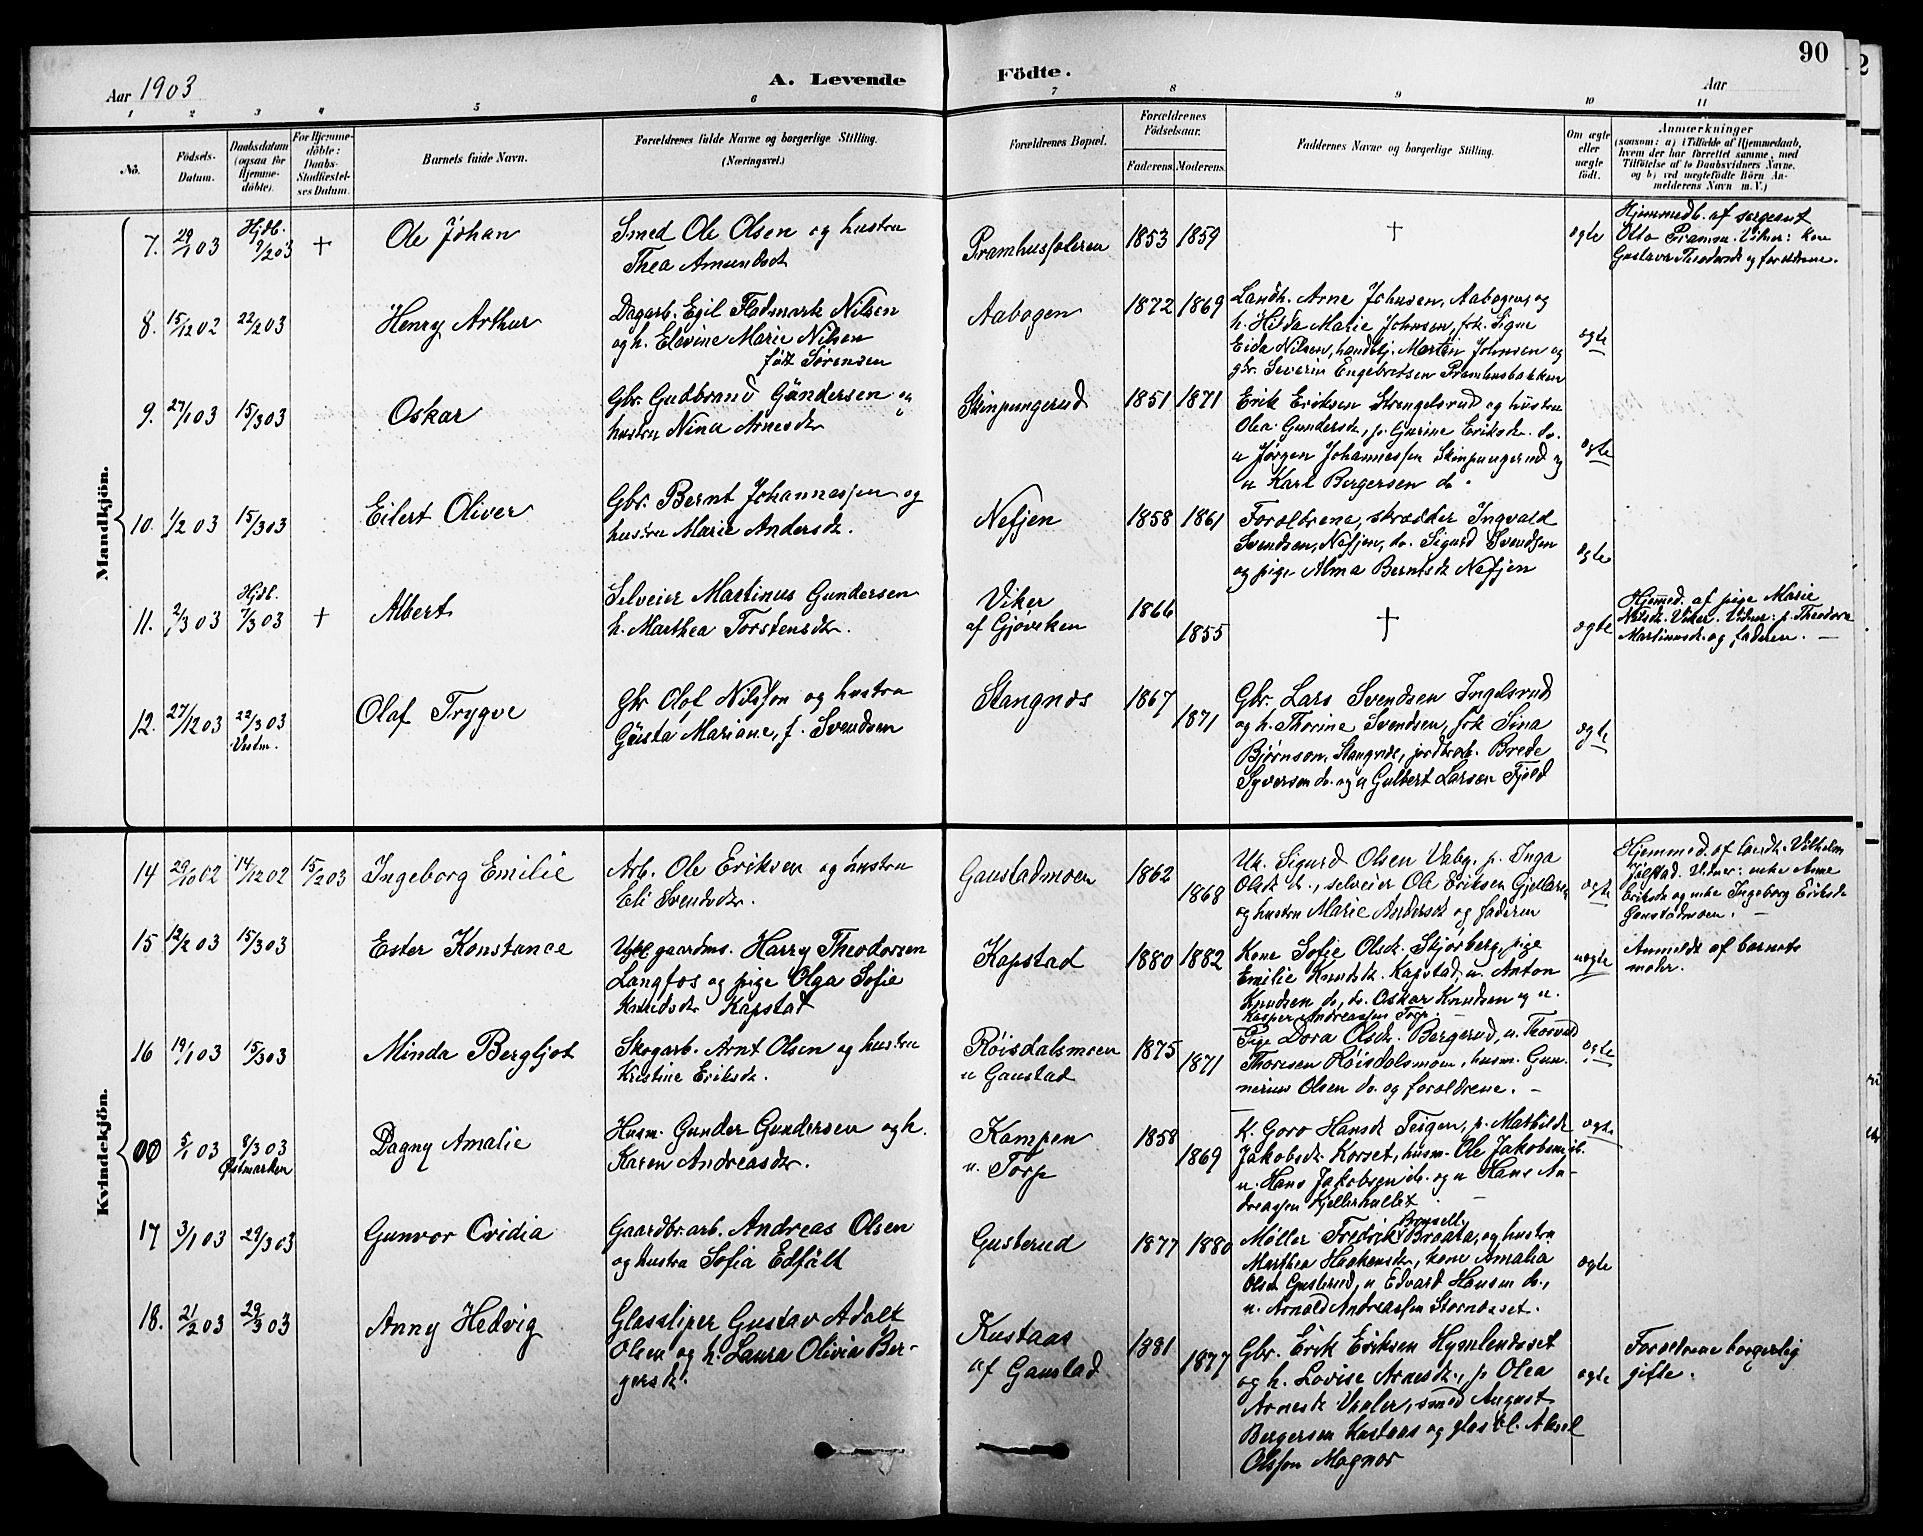 90
Aar 1903
A. Levende Födte.
Aar
1 2 3 4 5 6 7 8 9 10 11
No.
Födsels-
Datum.
Daabsdatum
(ogsaa for
Hjemme-
döbte).
For Hjemme-
döbte:
Daabs-
Stadfæstel-
ses Datum.
Barnets fulde Navn.
Forældrenes fulde Navne og borgerlige Stilling.
(Næringsvei.)
Forældrenes Bopæl.
Forældrenes
Födselsaar.
Faderens. Moderens.
Faddernes Navne og borgerlige Stilling.
Om ægte
eller
uægte
födt.
Anmærkninger
(saasom: a) i Tilfælde af Hjemmedaab,
hvem der har forrettet samme, med
Tilföielse af to Daabsvidners Navne.
og b) ved uægtefödte Börn An-
melderens Navn m. V.)
Mandkjön.
7. 29/1 03
Hjdb.
9/2 03
+
Ole Johan
Smed Ole Olsen og hustru
Thea Amundsdt
Pramhusfaleren
1853 1859
+
ægte
Hjemmedb. af sergeant
Otto Pramm. Vidner: kone
Gustava Theodorsdt og forældrene.
8. 15/12 02 22/2 03
Henry Arthur
Dagarb. Egil Flodmark Nilsen
og h. Elevine Marie Nilsen
født Sørensen
Aabogen
1872 1869
Landh. Arne Johnsen, Aabogen, og
h. Hilda Marie Johnsen, frk. Signe
Eida Nilsen, handelsbj. Martin Johnsen og
gbr. Severin Engebretsen Pramhusbakken
ægte
9. 27/1 03 15/3 03
Oskar
Gbr. Gudbrand Gundersen og
hustru Nina Arnesdtr
Skinpungerud
1851 1871
Erik Eriksen Strengelsrud og hustru
Olea Gundersdt, p. Gurine Eriksdt. do.
u Jørgen Johannessen Skinpungerud og
u Karl Bergersen do.
ægte
10. 1/2 03 15/3 03
Eilert Oliver
Gbr. Bernt Johannessen og
hustru Marie Andersdt.
Nefjen
1858 1861
Forældrene, skrædder Ingvald
Svendsen, Nefjen, do. Sigurd Svendsen
og pige Alma Berntsdt Nefjen
ægte
11. 2/3 03
Hjdb.
7/3 03
+
Albert
Selveier Martinus Gundersen
h. Marthea Torstensdtr.
Viker
af Gjøviken
1866
1855
+
ægte
Hjemmed. af pige Marie
Nilsdt. Viker. Vidner: p. Theodora
Martinusdt. og faderen. —
12. 27/12 03 22/3 03
Vestm.
Olaf Trygve
Gbr Olof Nilsson og hustru
Gusta Mariane, f. Svendsen
Stangnes
1867
1871
Gbr. Lars Svendsen Ingelsrud
og h. Thorine Svendsen, frk Sina
Bjørnson, Stangnes, jordbrarb. Brede
Syversen do. og u Gulbert Larsen Fjeld
ægte
Kvindekjön.
14 29/10 02 14/12 02 15/2 03
Ingeborg Emilie
Arb. Ole Eriksen og hustru
Eli Svendsdtr.
Gaustadmoen
1862
1868
Uk. Sigurd Olsen Vaby, p. Inga
Olsdt do., selveier Ole Eriksen
og hustru Marie Andersdt og faderen
ægte
Hjemmed. af landh. Vilhelm
Vidner: enke Anne
Eriksdt og enke Ingeborg Eriksdt
Gaustadmoen. —
15 12/2 03 15/3 03
Ester Konstance
gaardms. Harry Theodorsen
Langfos og pige Olga Sofie
Knudsdtr Kapstad
Kapstad
1880 1882
Kone Sofie Olsdt. Skjørberg, pige
Emilie Knudsdt. Kapstad, u. Anton
Knudsen do, do. Oskar Knudsen og u.
Kasper Andreassen Torp. —
uægte
Anmeldt af barnets
moder.
16 19/1 03 15/3 03
Minda Bergljot
Skogarb. Arnt Olsen og hustru
Kristine Eriksdt.
Røisdalsmoen
u Gaustad
1875
1871
Pige Dora Olsdt. Bergerud, u. Thorvald
Thoresen Røisdalsmoen, husm. Gun-
nerius Olsen do. og forældrene. —
ægte
00 5/1 03 8/3 03
Østmarken
Dagny Amalie
Husm. Gunder Gundersen og h.
Karen Andreasdtr.
Kampen
u. Torp
1858
1869
K. Goro Hansdt Teigen, p. Mathilde
Jakobsdt. Korset, husm. Ole Jakobsen ib.
u. Hans Jakobsen do. og u Hans An-
dreassen Kjellerhullet
ægte
17 3/1 03 29/3 03
Gunvor Ovidia
Gaardbr.arb. Andreas Olsen
og hustru Sofia Edfält
Gusterud
1877 1880
Møller Fredrik Braata, og hustru
Marthea Haakensdtr, kone Amalia
Olsdt Gusterud, u. Edvard Hansen do.,
u. Arnold Andreassen Stornæsset.
ægte
18. 21/2 03 29/3 03
Anny Hedvig
Glassliper Gustav Adolf
Olsen og h. Laura Olivia Ber-
gersdt.
Kustaas
af Gaustad
1881
1877
Gbr. Erik Eriksen Hymlenæsset
og h. Lovise Arnesdt., p. Olea
Arnesdt Vaaler, smed August
Bergersen Kustaas og glassl. Aksel
Olsson Magnor
ægte
Forældrene borgerlig
gifte.